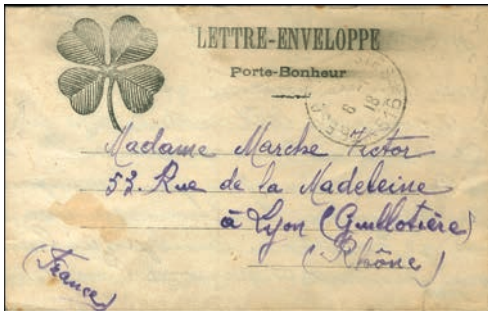 LETTRE-ENVELOPPE
Porte-Bonheur
Madame Marche Victor
53. Rue de la Madeleine
à Lyon (Guillotière)
(Rhône)
(France)